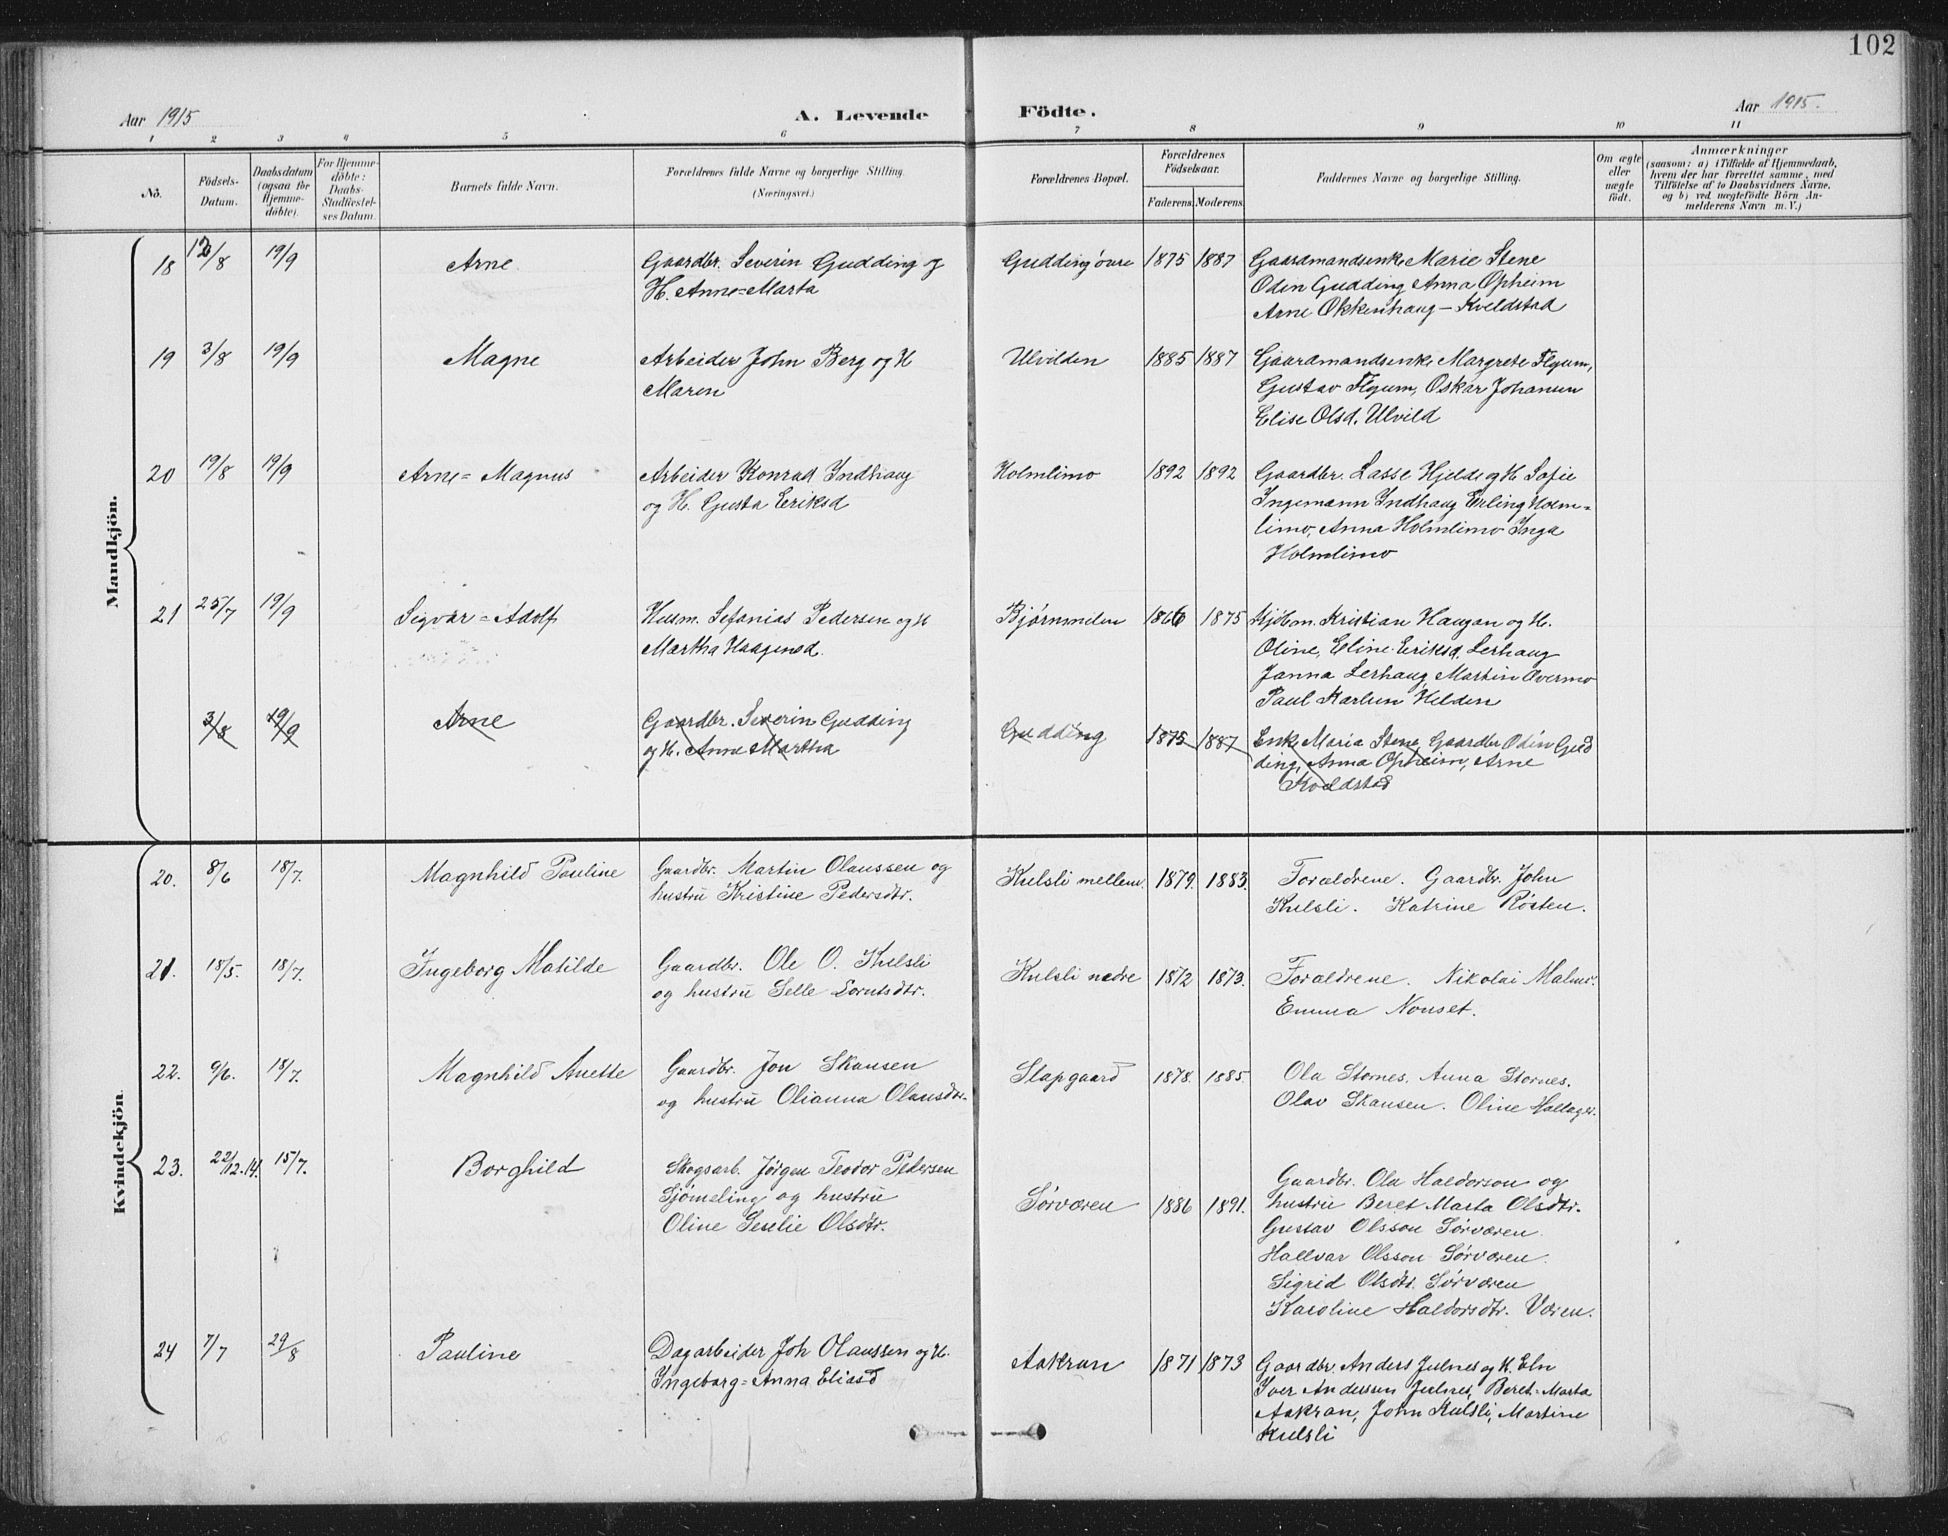 102
Aar 1915 A. Levende Födte. Aar 1915.
1 2 3 4 5 6 7 8 9 10 11
No.
Födsels-Datum.
Daabsdatum (ogsaa for Hjemme-döbte).
For Hjemme-döbte: Daabs-Stadfæstel-ses Datum.
Barnets fulde Navn.
Forældrenes fulde Navne og borgerlige Stilling.
(Næringsvei.)
Forældrenes Bopæl.
Forældrenes Födselsaar.
Faderens. Moderens.
Faddernes Navne og borgerlige Stilling.
Om ægte eller uægte födt.
Anmærkninger
(saasom: a) i Tilfælde af Hjemmedaab,
hvem der har forrettet samme, med
Tilföielse af to Daabsvidners Navne,
og b) ved uægtefödte Börn An-
melderens Navn m. V.)
Mandkjön.
18 12/8 19/9 Arne Gaardbr. Severin Gudding og Gudding øvre 1875 1887 Gaardmandsenke Marie Stene
H. Anne=Marta Odin Gudding Anna Opheim
Arne Okkenhaug – Kveldstad
19 3/8 19/9 Magne Arbeider John Berg og H Ulvilden 1885 1887 Gaardmandsenke Margrete Flyum,
Maren Gustav Flyum, Oskar Johansen
Elise Olsd. Ulvild
20 19/8 19/9 Arne=Magnus Arbeider Konrad Indhaug Holmlimo 1892 1892 Gaardbr. Lasse Hjelde og H Sofie
og H. Gusta Eriksd Ingemann Indhaug Erling Holm=
limo, Anna Holmlimo Inga
Holmlimo
21 25/7 19/9 Sigvar=Adolf Husm. Sefanias Pedersen og H Bjørnmelen 1866 1875 Kjøbm. Kristian Haugan og H.
Martha Haagensd. Oline, Eline Eriksd. Lerhaug
Janna Lerhaug, Martin Overmo
Paul Karlsen Helden
3/8 19/9 Arne Gaardbr. Severin Gudding Gudding 1875 1887 Enke Maria Stene, Gaardbr Odin Gud
og H. Anne Martha ding, Anna Opheim, Arne
Kveldstad
Kvindekjön.
20. 8/6 18/7. Magnhild Pauline Gaardbr. Martin Olaussen og Kulsli mellem. 1879. 1883. Forældrene. Gaardbr. John
hustru Kristine Pedersdtr. Kulsli. Katrine Røsten.
21. 18/5. 18/7. Ingeborg Matilde Gaardbr. Ole O. Kulsli Kulsli nedre 1872 1873. Forældrene. Nikolai Malmo.
og hustru Selle Lorntsdtr. Emma Nonset.
22. 9/6. 18/7. Magnhild Anette Gaardbr. Jon Skansen Slapgaard 1878. 1885. Ola Stornes. Anna Stornes.
og hustru Olianna Olausdtr. Olav Skansen. Oline Hallager.
23. 22/12.14. 15/7. Borghild Skogsarb. Jørgen Teodor Pedersen Sørværen 1886 1891. Gaardbr. Ola Haldorson og
Sjømeling og hustru hustru Beret Marta Olsdtr.
Oline Seselie Olsdtr. Gustav Olsson Sørværen.
Hallvar Olsson Sørværen.
Sigrid Olsdtr. Sørværen
Karoline Haldorsdtr. Væren.
24 7/7 29/8 Pauline Dagarbeider Joh Olaussen og H. Aakran 1871 1873 Gaardbr. Anders Julnes og H. Eln
Ingeborg=Anna Eliasd Iver Anderssen Julnes, Beret=Marta
Aakran, John Kulsli, Martine
Kulsli